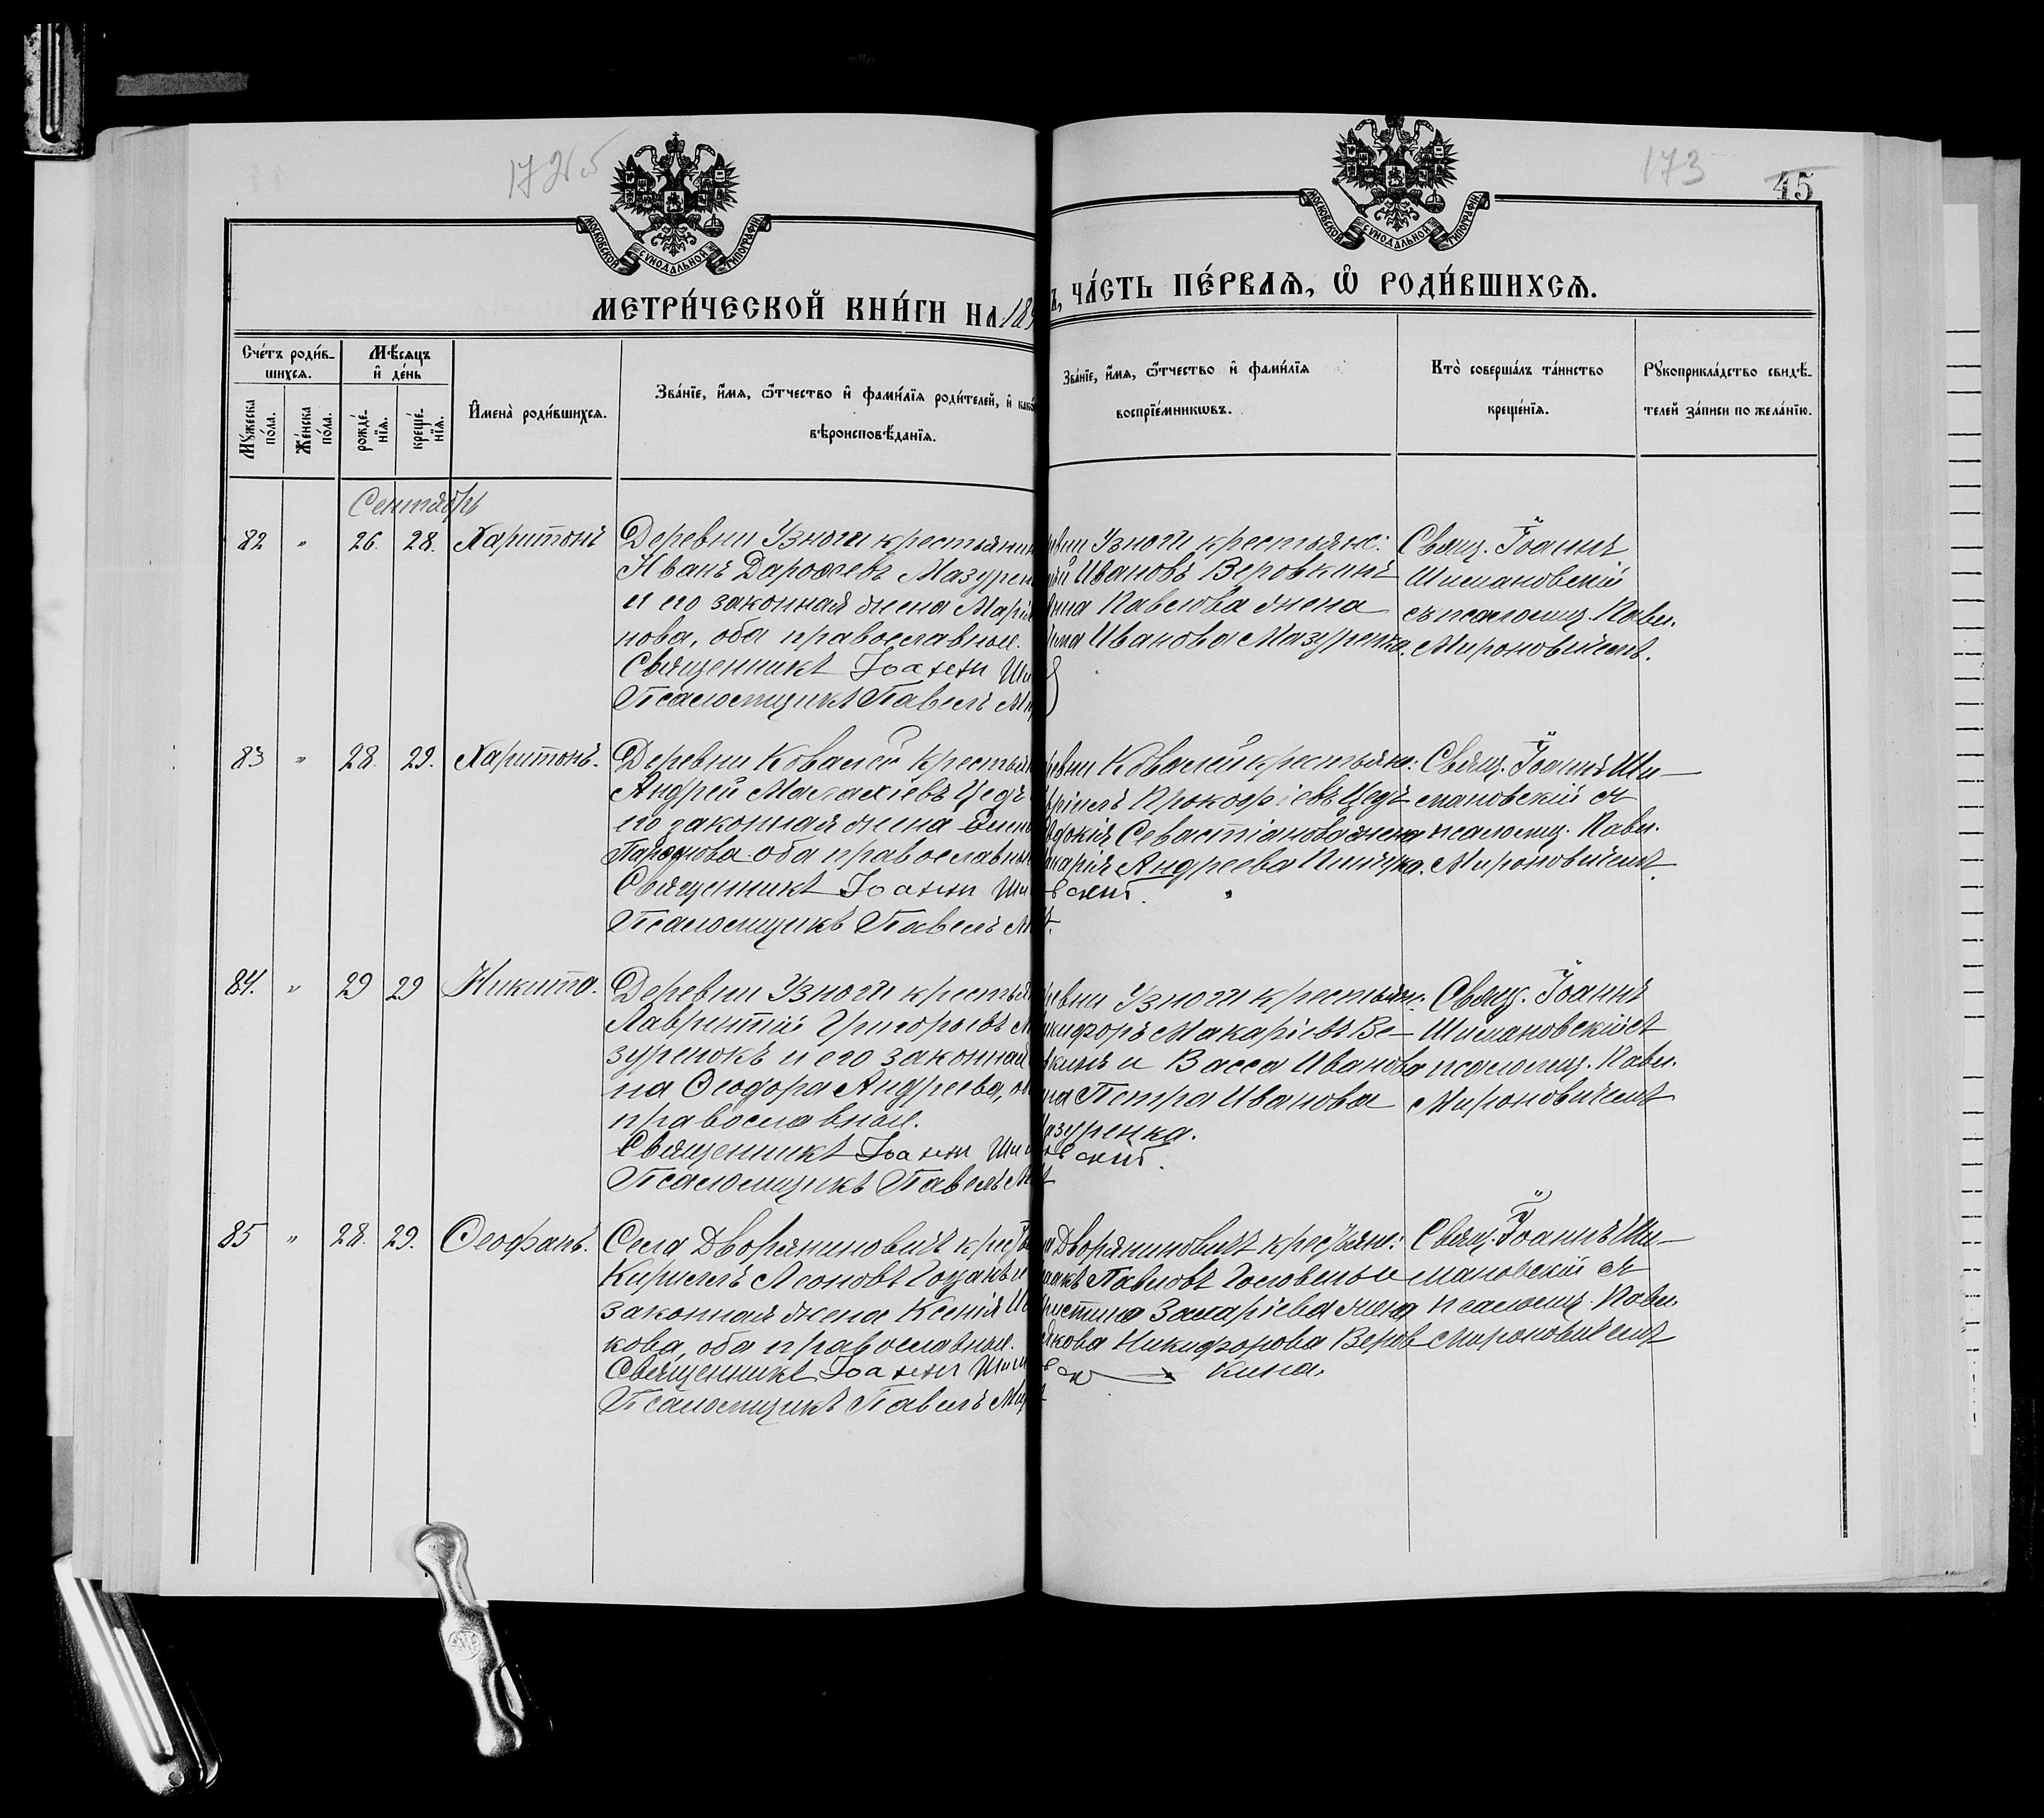 172 об
173
45
МОСКОВСКОЙ СѴНОДАЛЬНОЙ ТИПОГРАФІИ
МОСКОВСКОЙ СѴНОДАЛЬНОЙ ТИПОГРАФІИ
МЕТРИ́ЧЕСКОЙ КНИ́ГИ НА 18
Ъ, ЧА́СТЬ ПЕ́РВАѦ, Ѽ РОДИ́ВШИХСѦ.
Сче́тъ роди́в-
шихсѧ.
Мѣ́сѧцъ
и҆ де́нь
Мꙋ́жеска
по́ла.
Же́нска
по́ла.
рожде́-
нїѧ.
креще́-
нїѧ.
И҆мена̀ роди́вшихсѧ.
Зва́нїе, и҆́мѧ, ѿ́чество и҆ фами́лїѧ роди́телей, и҆
вѣроисповѣ́данїѧ.
Зва́нїе, и҆́мѧ, ѿ́чество и҆ фами́лїѧ
воспрїе́мникѡвъ.
Кто̀ соверша́лъ та́инство
креще́нїѧ.
Рꙋкоприкла́дство свидѣ́-
телей за́писи по жела́нїю.
Сентябрь
82 " 26. 28. Харитонъ
Деревни Узноги крестьянин
Иванъ Дарофеевъ Мазурен
и его законная жена Марія
нова, оба православные.
Священникъ Іоаннъ Ши
Псаломщикъ Павелъ Ми
вни Узноги крестьян:
й Ивановъ Веровкинъ
нна Павлова жена
Иванова Мазуренка.
Свящ. Іоаннъ
Шимановскій
съ псаломщ. Павл.
Мироновичемъ.
83 " 28. 29. Харитонъ.
Деревни Ковалей крестьян
Андрей Малахіевъ Цедъ
его законная жена Елен
Парфнова оба православны
Священникъ Іоаннъ Ши
Псаломщикъ Павелъ М
вни Ковалей крестьян:
вріилъ Прокофіевъ Цедъ
вдокія Севастіанова жена
харія Андреева
вскій.
Свящ. Іоаннъ Ши-
мановскій съ
псаломщ. Павл.
Мироновичемъ.
84. " 29 29 Никита.
Деревни Узноги крестья
Лаврентій Григорьевъ М
зуренокъ и его законная
на Ѳеодора Андреева, о
православные.
Священникъ Іоаннъ Ши
Псаломщикъ Павелъ М
вни Узноги крестьян:
икифоръ Макаріевъ Ве-
кинъ и Васса Иванова
на Петра Иванова
азуренка.
вскій.
Свящ. Іоаннъ
Шимановскій съ
псаломщ. Павл.
Мироновичемъ
85 " 28. 29. Ѳеофанъ.
Села Дворяниновичъ крестья
Кириллъ Леоновъ Гоцакъ и
законная жена Ксенія
кова, оба православные.
Священникъ Іоаннъ Шим
Псаломщикъ Павелъ Ми
Дворяниновичъ крестьян:
аакъ Павловъ Головень и
ристина Захаріева жена
Якова Никифорова Веров
кина.
Свящ. Іоаннъ Ши-
мановскій съ
псаломщ. Павл.
Мироновичемъ